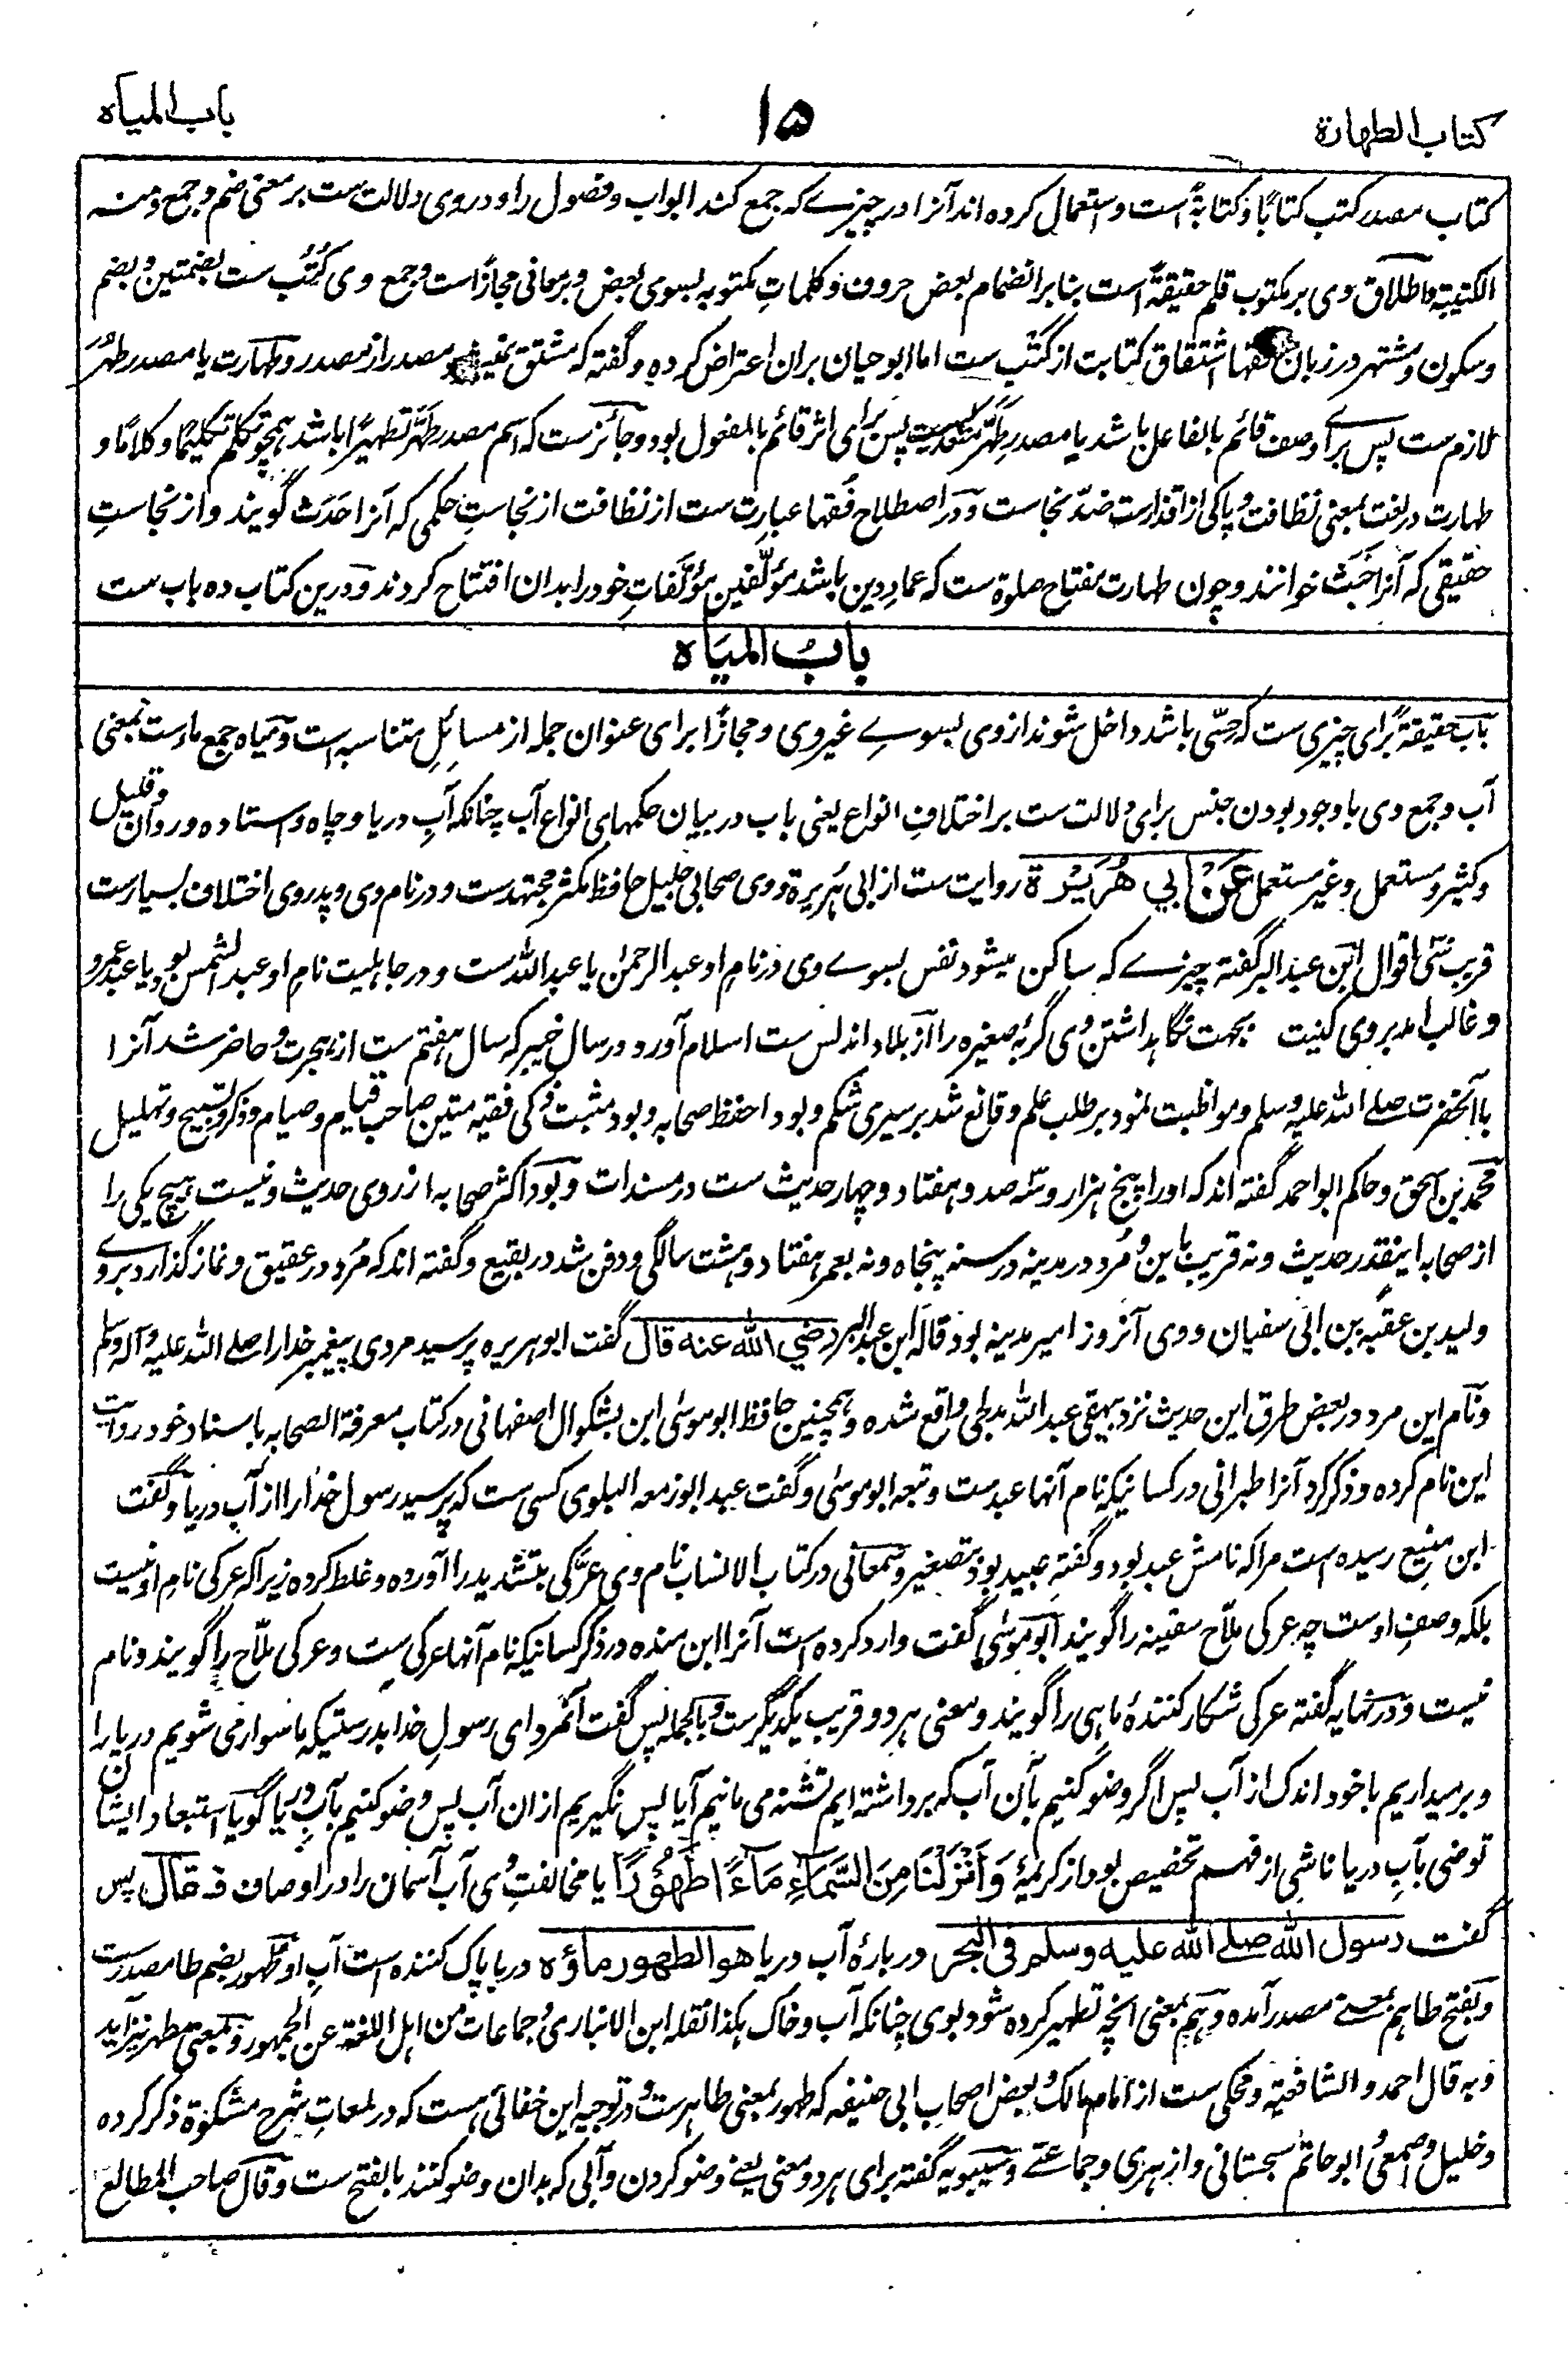 کتاب الطهارة
۱۵
باب المیاه
کتاب مصدر کتب کتابًا و کتابةً است و استعمال کرده اند آنرا در چیزے که جمع کند ابواب و فصول را و در وی دلالت ست بر معنی ضم و جمع و منه
الکتیبة و اطلاق وی بر مکتوب قلم حقیقةً است بنابر انضمام بعض حروف و کلمات مکتوبه بسوی بعض و بر معانی مجازًا است و جمع وی کُتُب ست بضمتین و بضم
و سکون و مشتهر در زبان فقها اشتقاق کتابت از کَتْب ست اما ابو حیان بران اعتراض کرده و گفته که مشتق نیست مصدر از مصدر و طهارت یا مصدر طَهُرَ
لازم ست پس برای وصف قائم بالفاعل باشد یا مصدر طَهَّرَ متعدیست پس برای اثر قائم بالمفعول بود و جائز ست که اسم مصدر طَهَّرَ تطهیرًا باشد همچو تکلم تکلیمًا و کلامًا و
طهارت در لغت بمعنی نظافت و پاکی از اقذارست ضدّ نجاست و در اصطلاح فقها عبارت ست از نظافت از نجاستِ حکمی که آنرا حَدَث گویند و از نجاستِ
حقیقی که آنرا خَبَث خوانند و چون طهارت مفتاح صلوة ست که عمادِ دین باشد مؤلّفین مؤلَّفاتِ خود را بدان افتتاح کردند و درین کتاب ده باب ست
باب المیاه
باب حقیقةً برای چیزی ست که حِسّی باشد داخل شوند از وی بسوے غیر وی و مجازًا برای عنوان جمله از مسائلِ متناسبه است و میاه جمع ماء ست بمعنی
آب و جمع وی با وجود بودن جنس برای دلالت ست بر اختلافِ انواع یعنی باب در بیان حکمهای انواع آب چنانکه آبِ دریا و چاه و استاده و روان و قلیل
و کثیر و مستعمل و غیر مستعمل عَنْ اَبِي هُرَيْرَة روایت ست از ابی هُریرة و وی صحابی جلیل حافظ مکثر مجتهدست و در نام وی و پدر وی اختلاف بسیارست
قریب سّی اقوال ابن عبد البر گفته چیزے که ساکن میشود نفس بسوے وی در نامِ او عبد الرحمٰن یا عبد الله ست و در جاهلیت نامِ او عبد الشمس بود یا عبد عمرو
و غالب آمد بر وی کنیت بجهت نگاهداشتن وی گربهٔ صغیره را از بلاد اندلس ست اسلام آورد در سال خیبر که سال هفتم ست از هجرت و حاضر شد آنرا
با آنحضرت صلے الله علیه وسلم و مواظبت نمود بر طلب علم و قانع شد بر سیری شکم و بود احفظ صحابه و بود مثبت ذکی فقیه متین صاحب قیام و صیام و ذکر و تسبیح و تهلیل
محمد بن اسحق و حاکم ابو احمد گفته اند که او را پنج هزار و سّه صد و هفتاد و چهار حدیث ست در مسندات و بود اکثر صحابه از روی حدیث و نیست هیچ یکی را
از صحابه اینقدر حدیث و نه قریب باین و مُرد در مدینه در سنه پنجاه و نه بعمر هفتاد و هشت سالگی و دفن شد در بقیع و گفته اند که مُرد در عقیق و نماز گذارد بر وی
ولید بن عقبه بن ابی سفیان و وی آنروز امیر مدینه بود قاله ابن عبد البر رضي الله عنه قال گفت ابو هریره پرسید مردی پیغمبر خدا را صلے الله علیه و آله وسلم
و نام این مرد در بعض طرق این حدیث نزد بیهقی عبد الله مدلجی واقع شده و همچنین حافظ ابو موسیٰ ابن بشکوال اصفهانی در کتاب معرفة الصحابه باسناد خود روایت
این نام کرده و ذکر کرد آنرا طبرانی در کسانیکه نام آنها عبدست و تبعه ابو موسیٰ و گفت عبد ابو زمعه البلوی کسی ست که پرسید رسول خدا را از آبِ دریا و گفت
ابن منیع رسیده است مرا که نامش عبد بود و گفته عبید بود بتصغیر و سَمعانی در کتاب الانساب نام وی عرَّکی بتشدید را آورده و غلط کرده زیرا که عرکی نامِ او نیست
بلکه وصفِ اوست چه عرکی ملّاح سفینه را گویند ابو موسیٰ گفت وارد کرده است آنرا ابن منده در ذکر کسانیکه نام آنها عرکی ست و عرکی ملّاح را گویند و نام
نیست و در نهایه گفته عرکی شکار کنندهٔ ماهی را گویند و معنی هر دو قریب یکدیگرست و بالجمله پس گفت آنمرد ای رسولِ خدا بدرستیکه ما سوار می شویم دریا را
و برمیداریم با خود اندک از آب پس اگر وضو کنیم بآن آب که برداشته ایم تشنه می مانیم آیا پس نگیریم ازان آب پس وضو کنیم بآبِ دریا گویا استبعاد ایشان
توضی بآبِ دریا ناشی از فهم تخصیص بود از کریمهٔ وَ اَنْزَلْنَا مِنَ السَّمَاءِ مَاءً طَهُوْرًا یا مخالفتِ وی آب آسمان را در اوصاف فقال پس
گفت رسول الله صلے الله علیه وسلم فی البحر دربارهٔ آب دریا هو الطهور ماؤه دریا پاک کننده است آبِ او طُهور بضم طا مصدرست
و بفتح طا هم بمعنے مصدر آمده و هم بمعنی انچه تطهیر کرده شود بوی چنانکه آب و خاک هکذا نقله ابن الانباری و جماعات من اهل اللغة عن الجمهور و بمعنی مطهر نیز آید
و به قال احمد و الشافعیه و محکی ست از امام مالک و بعض اصحابِ ابی حنیفه که طهور بمعنی طاهرست و در توجیه این خفائی هست که در لمعاتِ شرح مشکوة ذکر کرده
و خلیل و اصمعی و ابو حاتم سجستانی و ازهری و جماعتے و سیبویه گفته برای هر دو معنی یعنے وضو کردن و آبی که بدان وضو کنند بالفتح ست و قال صاحب المطالع